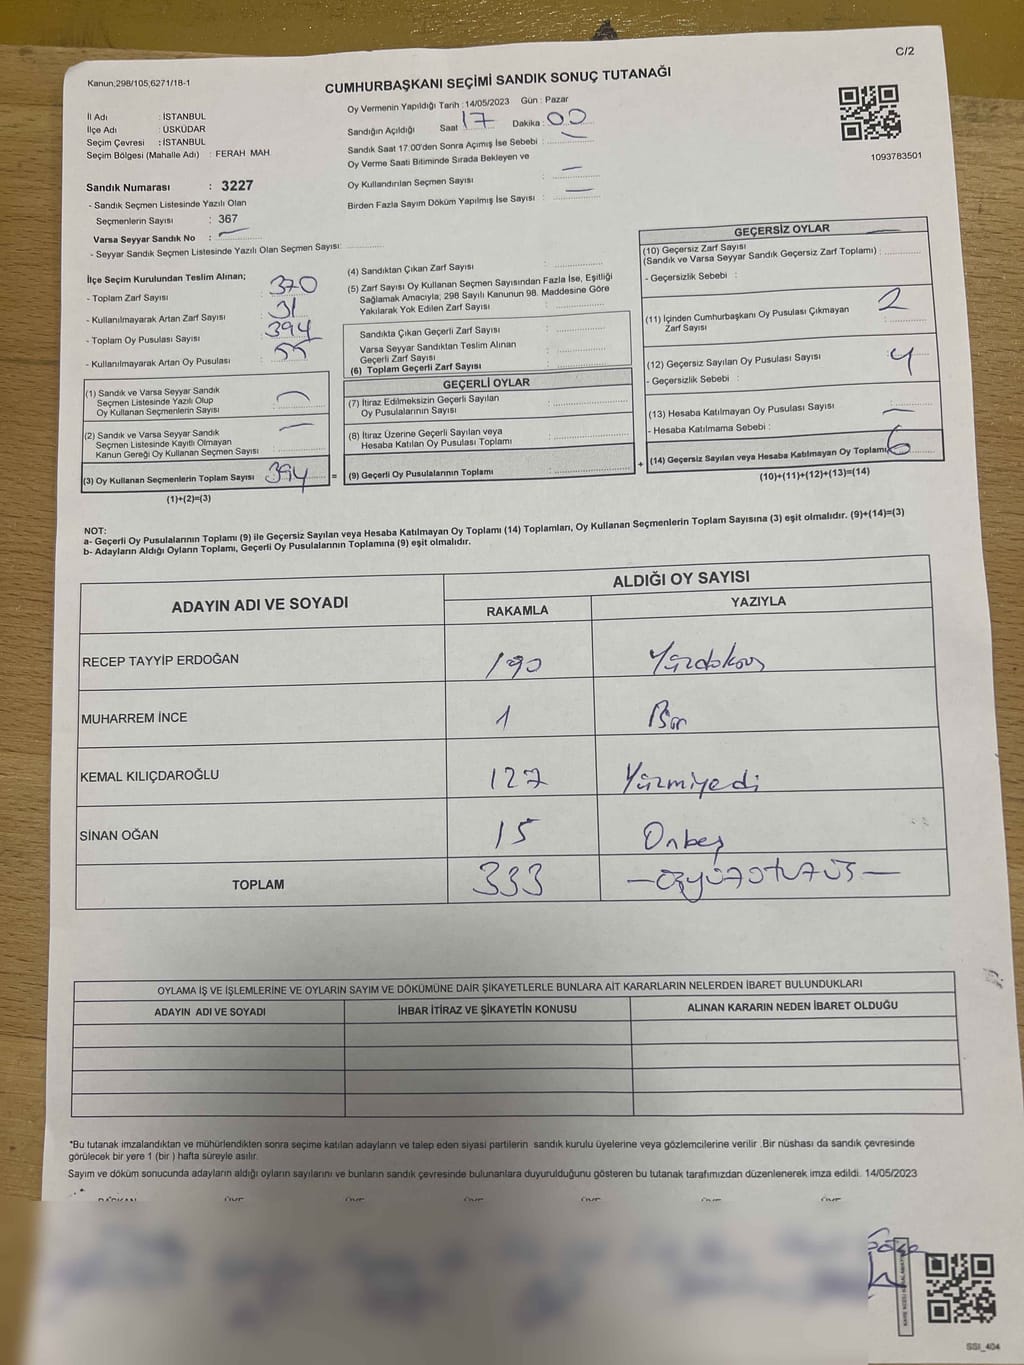 C/2
Kanun,298/105,6271/18-1
CUMHURBAŞKANI SEÇİMİ SANDIK SONUÇ TUTANAĞI
İl Adı : İSTANBUL
İlçe Adı : ÜSKÜDAR
Seçim Çevresi : İSTANBUL
Seçim Bölgesi (Mahalle Adı) : FERAH MAH.
Sandık Numarası : 3227
- Sandık Seçmen Listesinde Yazılı Olan
Seçmenlerin Sayısı : 367
Varsa Seyyar Sandık No :
- Seyyar Sandık Seçmen Listesinde Yazılı Olan Seçmen Sayısı:
Oy Vermenin Yapıldığı Tarih : 14/05/2023 Gün : Pazar
Sandığın Açıldığı Saat 17 Dakika : 00
Sandık Saat 17.00'den Sonra Açımış İse Sebebi :
Oy Verme Saati Bitiminde Sırada Bekleyen ve
Oy Kullandırılan Seçmen Sayısı
Birden Fazla Sayım Döküm Yapılmış İse Sayısı :
1093783501
İlçe Seçim Kurulundan Teslim Alınan;
- Toplam Zarf Sayısı : 370
- Kullanılmayarak Artan Zarf Sayısı : 31
- Toplam Oy Pusulası Sayısı : 394
- Kullanılmayarak Artan Oy Pusulası : 55
(1) Sandık ve Varsa Seyyar Sandık
Seçmen Listesinde Yazılı Olup
Oy Kullanan Seçmenlerin Sayısı
(2) Sandık ve Varsa Seyyar Sandık
Seçmen Listesinde Kayıtlı Olmayan
Kanun Gereği Oy Kullanan Seçmen Sayısı
(3) Oy Kullanan Seçmenlerin Toplam Sayısı 394 =
(1)+(2)=(3)
(4) Sandıktan Çıkan Zarf Sayısı :
(5) Zarf Sayısı Oy Kullanan Seçmen Sayısından Fazla İse, Eşitliği
Sağlamak Amacıyla; 298 Sayılı Kanunun 98. Maddesine Göre
Yakılarak Yok Edilen Zarf Sayısı :
Sandıkta Çıkan Geçerli Zarf Sayısı :
Varsa Seyyar Sandıktan Teslim Alınan
Geçerli Zarf Sayısı :
(6) Toplam Geçerli Zarf Sayısı :
GEÇERLİ OYLAR
(7) İtiraz Edilmeksizin Geçerli Sayılan
Oy Pusulalarının Sayısı :
(8) İtiraz Üzerine Geçerli Sayılan veya
Hesaba Katılan Oy Pusulası Toplamı :
(9) Geçerli Oy Pusulalarının Toplamı : +
GEÇERSİZ OYLAR
(10) Geçersiz Zarf Sayısı
(Sandık ve Varsa Seyyar Sandık Geçersiz Zarf Toplamı) :
- Geçersizlik Sebebi :
(11) İçinden Cumhurbaşkanı Oy Pusulası Çıkmayan
Zarf Sayısı : 2
(12) Geçersiz Sayılan Oy Pusulası Sayısı : 4
- Geçersizlik Sebebi :
(13) Hesaba Katılmayan Oy Pusulası Sayısı :
- Hesaba Katılmama Sebebi :
(14) Geçersiz Sayılan veya Hesaba Katılmayan Oy Toplamı: 6
(10)+(11)+(12)+(13)=(14)
NOT:
a- Geçerli Oy Pusulalarının Toplamı (9) ile Geçersiz Sayılan veya Hesaba Katılmayan Oy Toplamı (14) Toplamları, Oy Kullanan Seçmenlerin Toplam Sayısına (3) eşit olmalıdır. (9)+(14)=(3)
b- Adayların Aldığı Oyların Toplamı, Geçerli Oy Pusulalarının Toplamına (9) eşit olmalıdır.
ADAYIN ADI VE SOYADI
ALDIĞI OY SAYISI
RAKAMLA YAZIYLA
RECEP TAYYİP ERDOĞAN 190 Yüzdoksan
MUHARREM İNCE 1 Bir
KEMAL KILIÇDAROĞLU 127 Yüzmiyedi
SİNAN OĞAN 15 Onbeş
TOPLAM 333 - üçyüzotuzüç -
OYLAMA İŞ VE İŞLEMLERİNE VE OYLARIN SAYIM VE DÖKÜMÜNE DAİR ŞİKAYETLERLE BUNLARA AİT KARARLARIN NELERDEN İBARET BULUNDUKLARI
ADAYIN ADI VE SOYADI İHBAR İTİRAZ VE ŞİKAYETİN KONUSU ALINAN KARARIN NEDEN İBARET OLDUĞU
*Bu tutanak imzalandıktan ve mühürlendikten sonra seçime katılan adayların ve talep eden siyasi partilerin sandık kurulu üyelerine veya gözlemcilerine verilir .Bir nüshası da sandık çevresinde
görülecek bir yere 1 (bir ) hafta süreyle asılır.
Sayım ve döküm sonucunda adayların aldığı oyların sayılarını ve bunların sandık çevresinde bulunanlara duyurulduğunu gösteren bu tutanak tarafımızdan düzenlenerek imza edildi. 14/05/2023
SSI_404